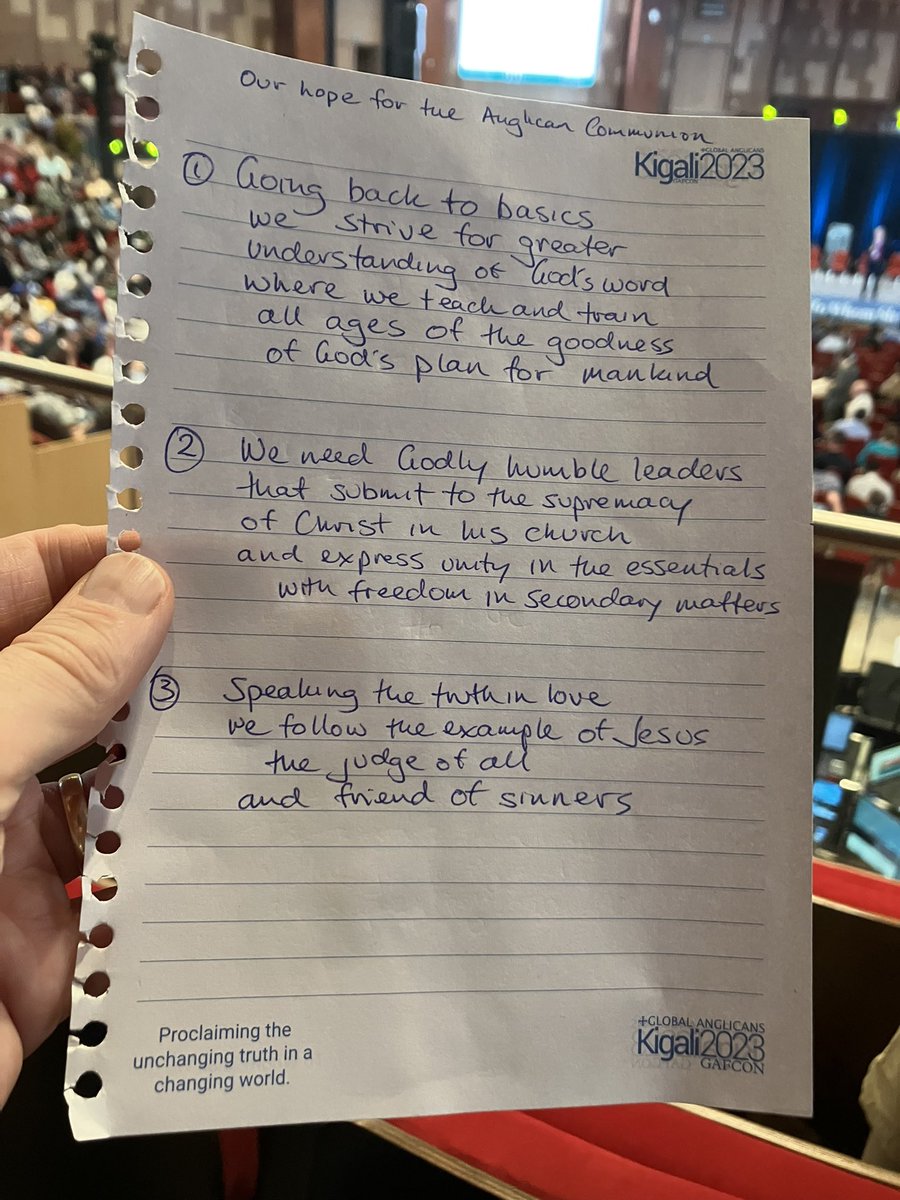 Our hope for the Anglican Communion
+GLOBAL ANGLICANS
Kigali2023
GAFCON
① Going back to basics
we strive for greater
understanding of God's word
where we teach and train
all ages of the goodness
of God's plan for mankind
② We need Godly humble leaders
that submit to the supremacy
of Christ in his church
and express unity in the essentials
with freedom in secondary matters
③ Speaking the truth in love
we follow the example of Jesus
the judge of all
and friend of sinners
Proclaiming the
unchanging truth in a
changing world.
+GLOBAL ANGLICANS
Kigali2023
GAFCON